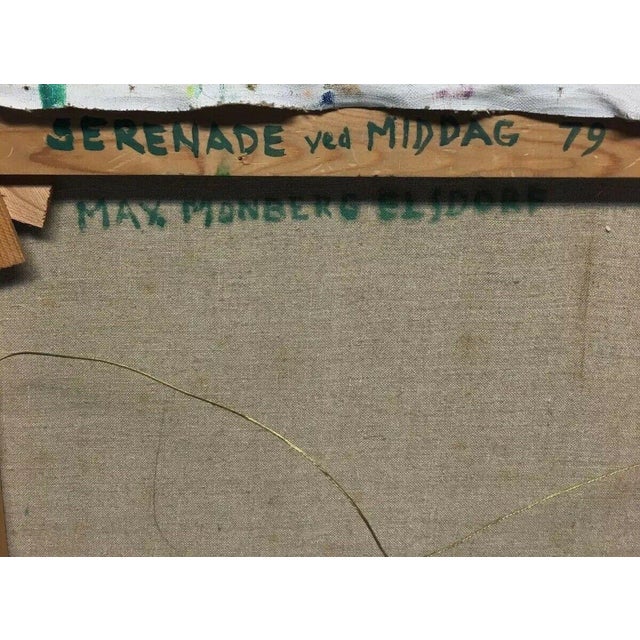 SERENADE ved MIDDAG 79
MAX MONBERG ELSDORF